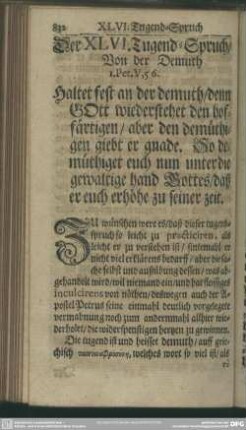 832 XLVI. Tugend-Spruch
Der XLVI. Tugend-Spruch/
Von der Demuth
1. Pet. V, 5 6.
Haltet fest an der demuth/denn
GOtt wiederstehet den hof-
färtigen / aber den demüthi-
gen giebt er gnade. So de-
müthiget euch nun unter die
gewaltige hand Gottes/daß
er euch erhöhe zu seiner zeit.
ZU wünschen were es/daß dieser tugend-
spruch so leicht zu practiciren, als
leicht er zu verstehen ist / sintemahl er
nicht viel erklärens bedarff / aber die sa-
che selbst und ausübung dessen/ was ab-
gehandelt wird/wil niemand ein/und
inculcirens von nöthen/deßwegen auch der A-
postel Petrus seine einmahl deutlich vorgelegte
vermahnung noch zum andernmahl allhier wie-
derholet/die widerspenstigen hertzen zu gewinnen.
Die tugend ist und heisset demuth/ auf grie-
chisch welches wort so viel ist/als